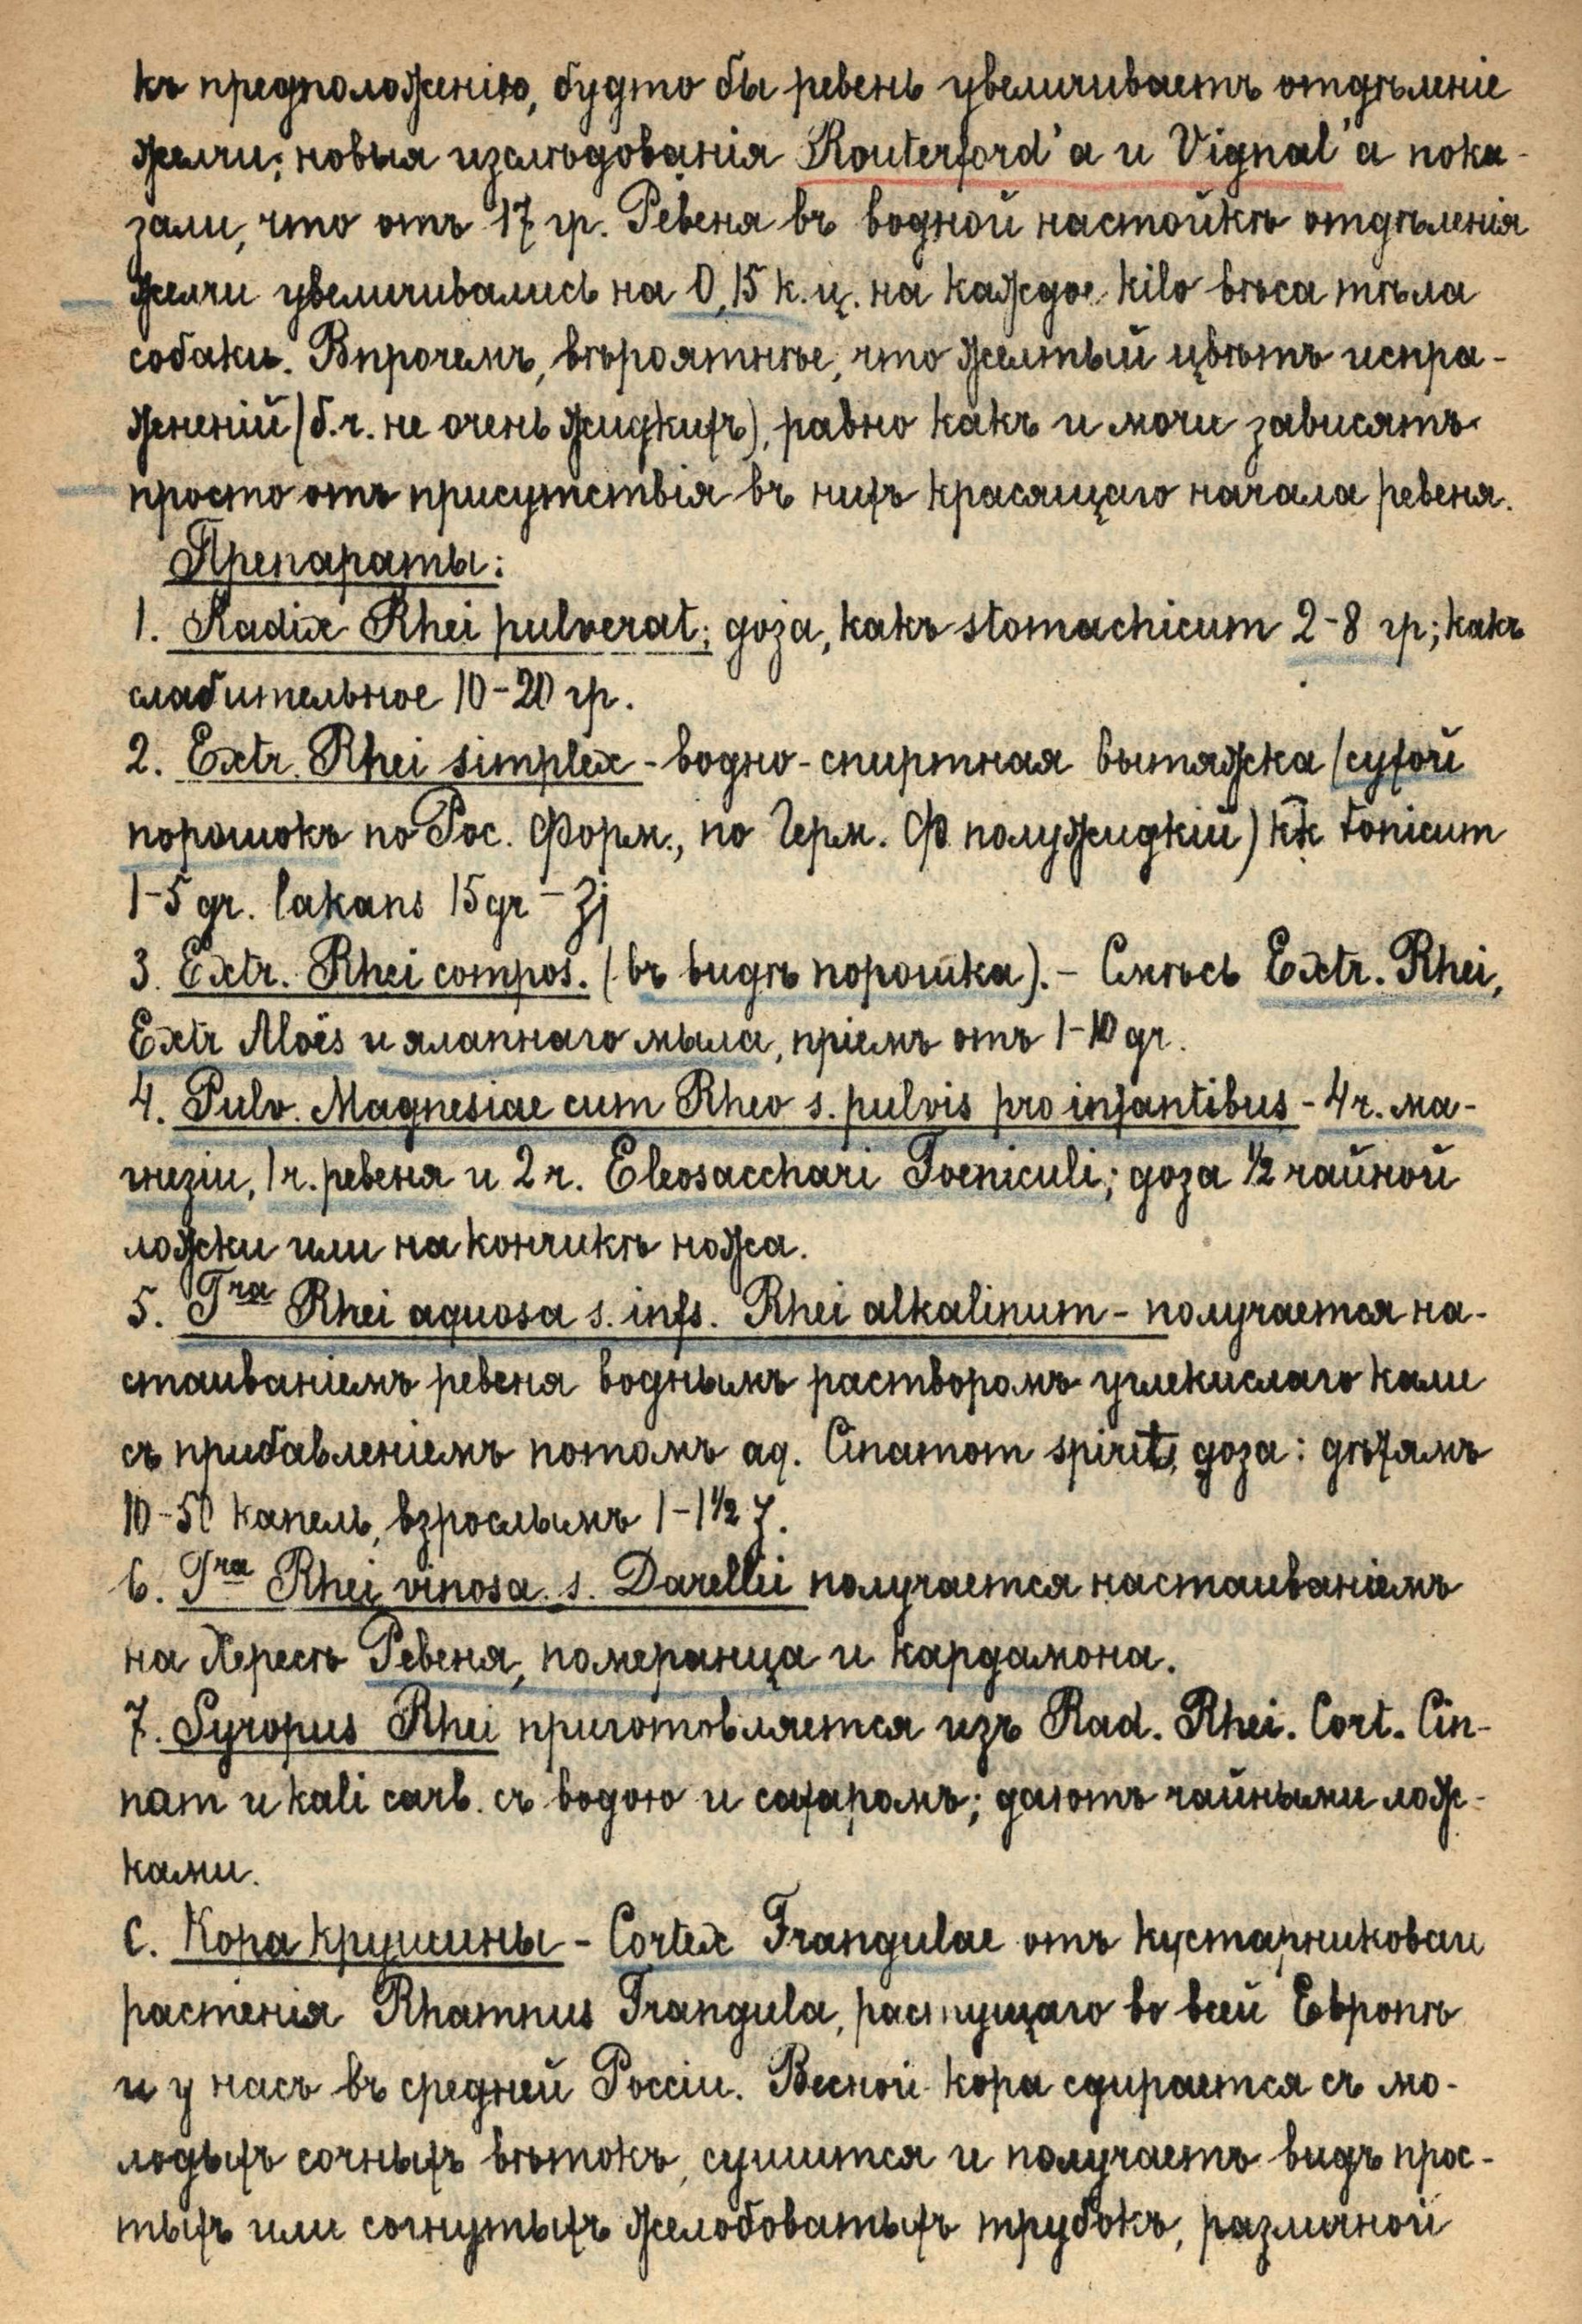 къ предположенію, будто бы ревень увеличиваетъ отдѣленіе
желчи; новыя изслѣдованія Routerford'а и Vignal'а пока-
зали, что отъ 17 гр. Ревеня въ водной настойкѣ отдѣленія
желчи увеличивались на 0,15 к.ц. на каждое kilo вѣса тѣла
собаки. Впрочемъ, вѣроятнѣе, что желтый цвѣтъ испра-
жненій (б.ч. не очень жидкихъ), равно какъ и мочи зависятъ
просто отъ присутствія въ нихъ красящаго начала ревеня.
Препараты:
1. Radix Rhei pulverat; доза, какъ stomachicum 2-8 гр; какъ
слабительное 10-20 гр.
2. Extr. Rhei simplex - водно-спиртная вытяжка (сухой
порошокъ по Рос. Форм., по Герм. Ф. полужидкій) tonicum
1-5 gr. laxans 15 gr - ʒj
3. Extr. Rhei compos. (въ видѣ порошка). - Смѣсь Extr. Rhei,
Extr Aloës и ялапнаго мыла, пріемъ отъ 1-10 gr.
4. Pulv. Magnesiae cum Rheo s. pulvis pro infantibus - 4 ч. ма-
гнезіи, 1 ч. ревеня и 2 ч. Eleosacchari Foeniculi; доза ½ чайной
ложки или на кончикѣ ножа.
5. Tra Rhei aquosa s. infs. Rhei alkalinum - получается на-
стаиваніемъ ревеня воднымъ растворомъ углекислаго кали
съ прибавленіемъ потомъ aq. Cinamom spirit, доза: дѣтямъ
10-50 капель, взрослымъ 1-1½ ʒ.
6. Tra Rhei vinosa. s. Darellii получается настаиваніемъ
на Хересѣ Ревеня, померанца и кардамона.
7. Syropus Rhei приготовляется изъ Rad. Rhei. Cort. Cin-
nam и kali carb. съ водою и сахаромъ; даютъ чайными лож-
ками.
C. Кора крушины - Cortex Frangulae отъ кустарниковаи
растенія Rhamnus Frangula, растущаго во всей Европѣ
и у насъ въ средней Россіи. Весной кора сдирается съ мо-
лодыхъ сочныхъ вѣтокъ, сушится и получаетъ видъ прос-
тыхъ или согнутыхъ желобоватыхъ трубокъ, различной